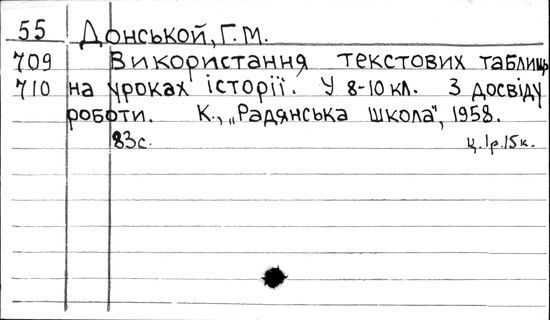 55 Донськой, Г.М.
709 Використання текстових таблиць
710 на уроках історії. У 8-10 кл. З досвіду
роботи. К., „Радянська школа", 1958.
83с. ц.1р.15к.